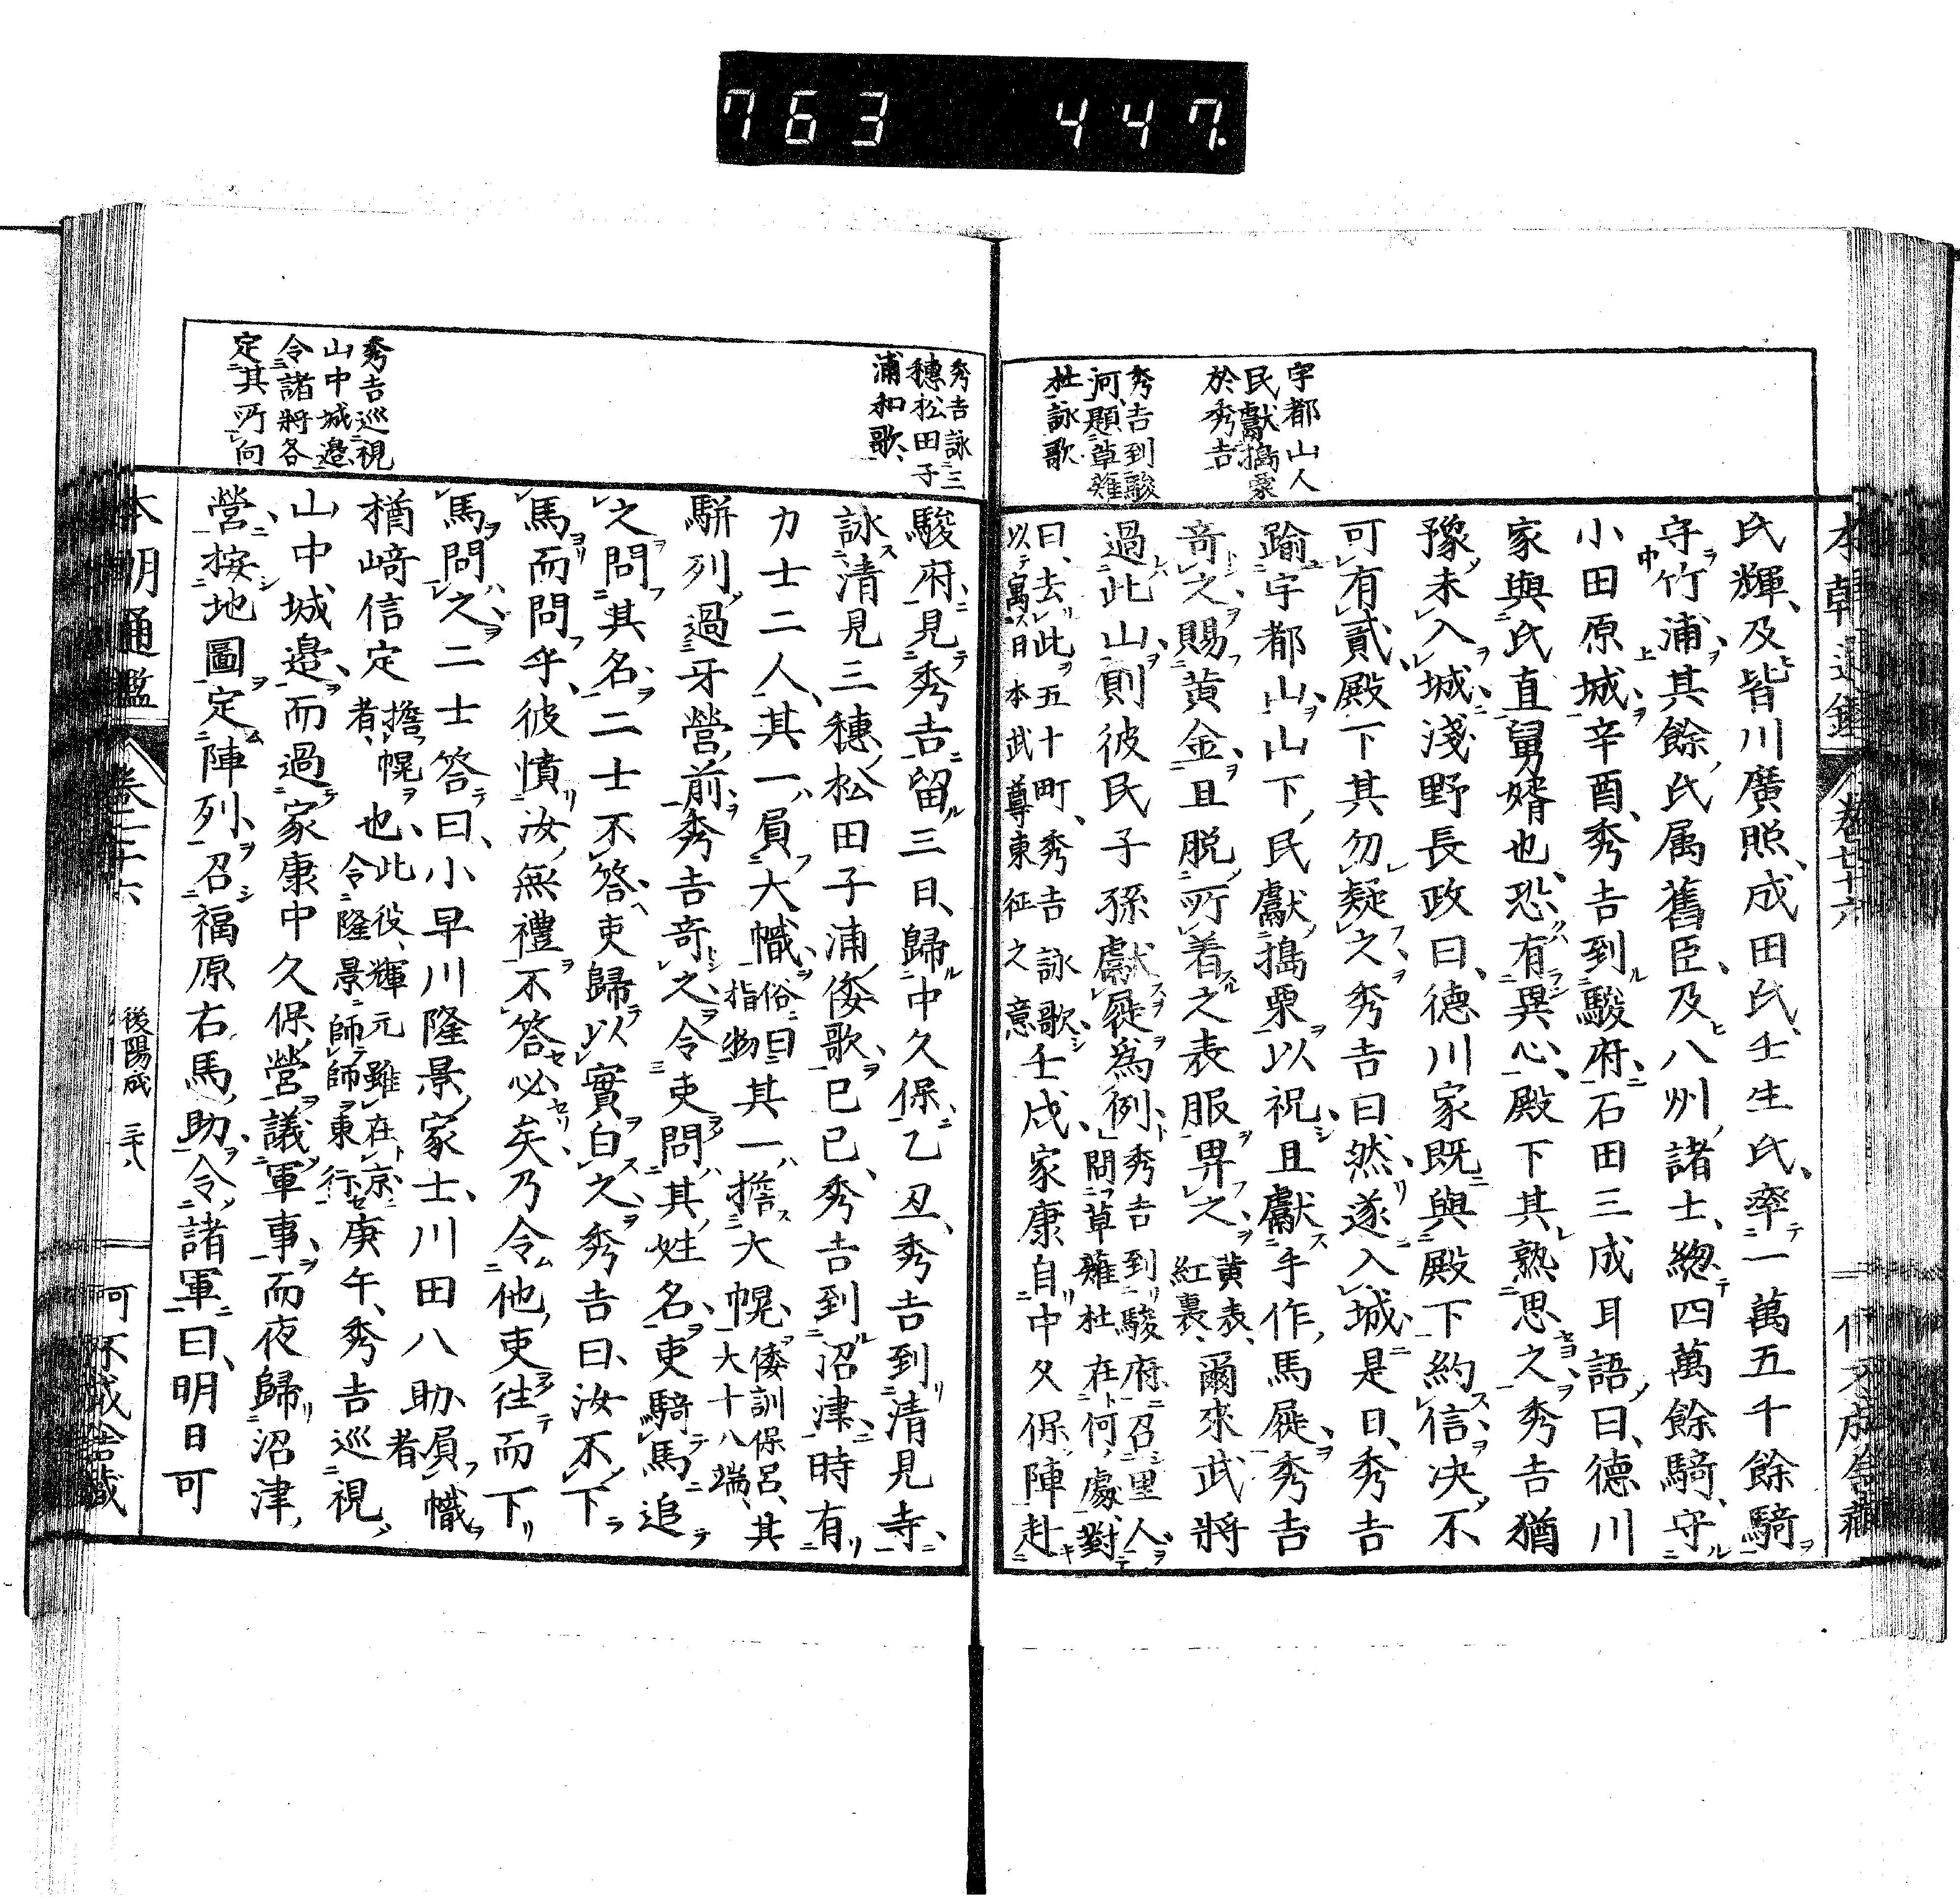 763 447
本朝通鑑
宇都山人
民獻搗栗
於秀吉
秀吉到駿
河題草薙
杜詠歌
氏輝、及皆川廣照、成田氏、壬生氏、率一萬五千餘騎
守竹浦、其餘氏属舊臣、及八州諸士、緫四萬餘騎、守
小田原城、辛酉、秀吉到駿府、石田三成耳語曰、德川
家與氏直舅婿也、恐有異心、殿下其熟思之、秀吉猶
豫、未入城、淺野長政曰、德川家既與殿下約信、决不
可有貳、殿下其勿疑之、秀吉曰然、遂入城、是日、秀吉
踰宇都山、山下民獻搗栗以祝、且獻手作馬屣、秀吉
奇之、賜黄金、且脱所着之表服畀之、黄表、紅裏、爾來武將
過此山則彼民子孫獻屣爲例、秀吉到駿府、召里人、問草薙杜在何處、對
曰、去此五十町、秀吉詠歌、以寓日本武尊東征之意、壬戌、家康自中久保陣赴
秀吉詠三
穗松田子
浦和歌、
秀吉巡視
山中城邉、
令諸將各
定其所向
駿府、見秀吉、留三日、歸中久保、乙丑、秀吉到清見寺、
詠清見三穗松田子浦倭歌、己巳、秀吉到沼津、時有
力士二人、其一員大幟、俗曰指物、其一擔大幌、倭訓保呂、其大十八端、
駢列過牙營前、秀吉奇之、令吏問其姓名、吏騎馬追
之問其名、二士不答、吏歸以實白之、秀吉曰、汝不下
馬而問乎、彼憤汝無禮不答必矣、乃令他吏往而下
馬問之、二士答曰、小早川隆景家士、川田八助、員幟者
楢﨑信定擔幌者也、此役、輝元雖在京、令隆景師師東行、庚午、秀吉巡視
山中城邉、而過家康中久保營、議軍事、而夜歸沼津、
營、按地圖定陣列、召福原右馬助、令諸軍曰、明日可
後陽成 三十八